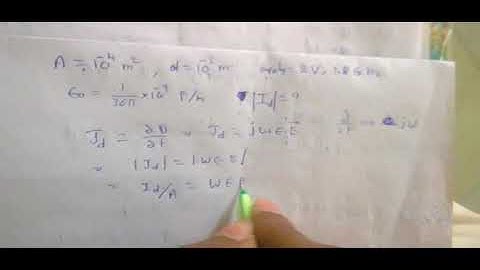 A = 10⁻⁴ m², d = 10⁻² m
ε₀ = 1/36π × 10⁻⁹ F/m |I_d| = ?
J_d = ∂D/∂t J_d = jωεE ∂/∂t → jω
|J_d| = |ωεE|
I_d/A = ωεE